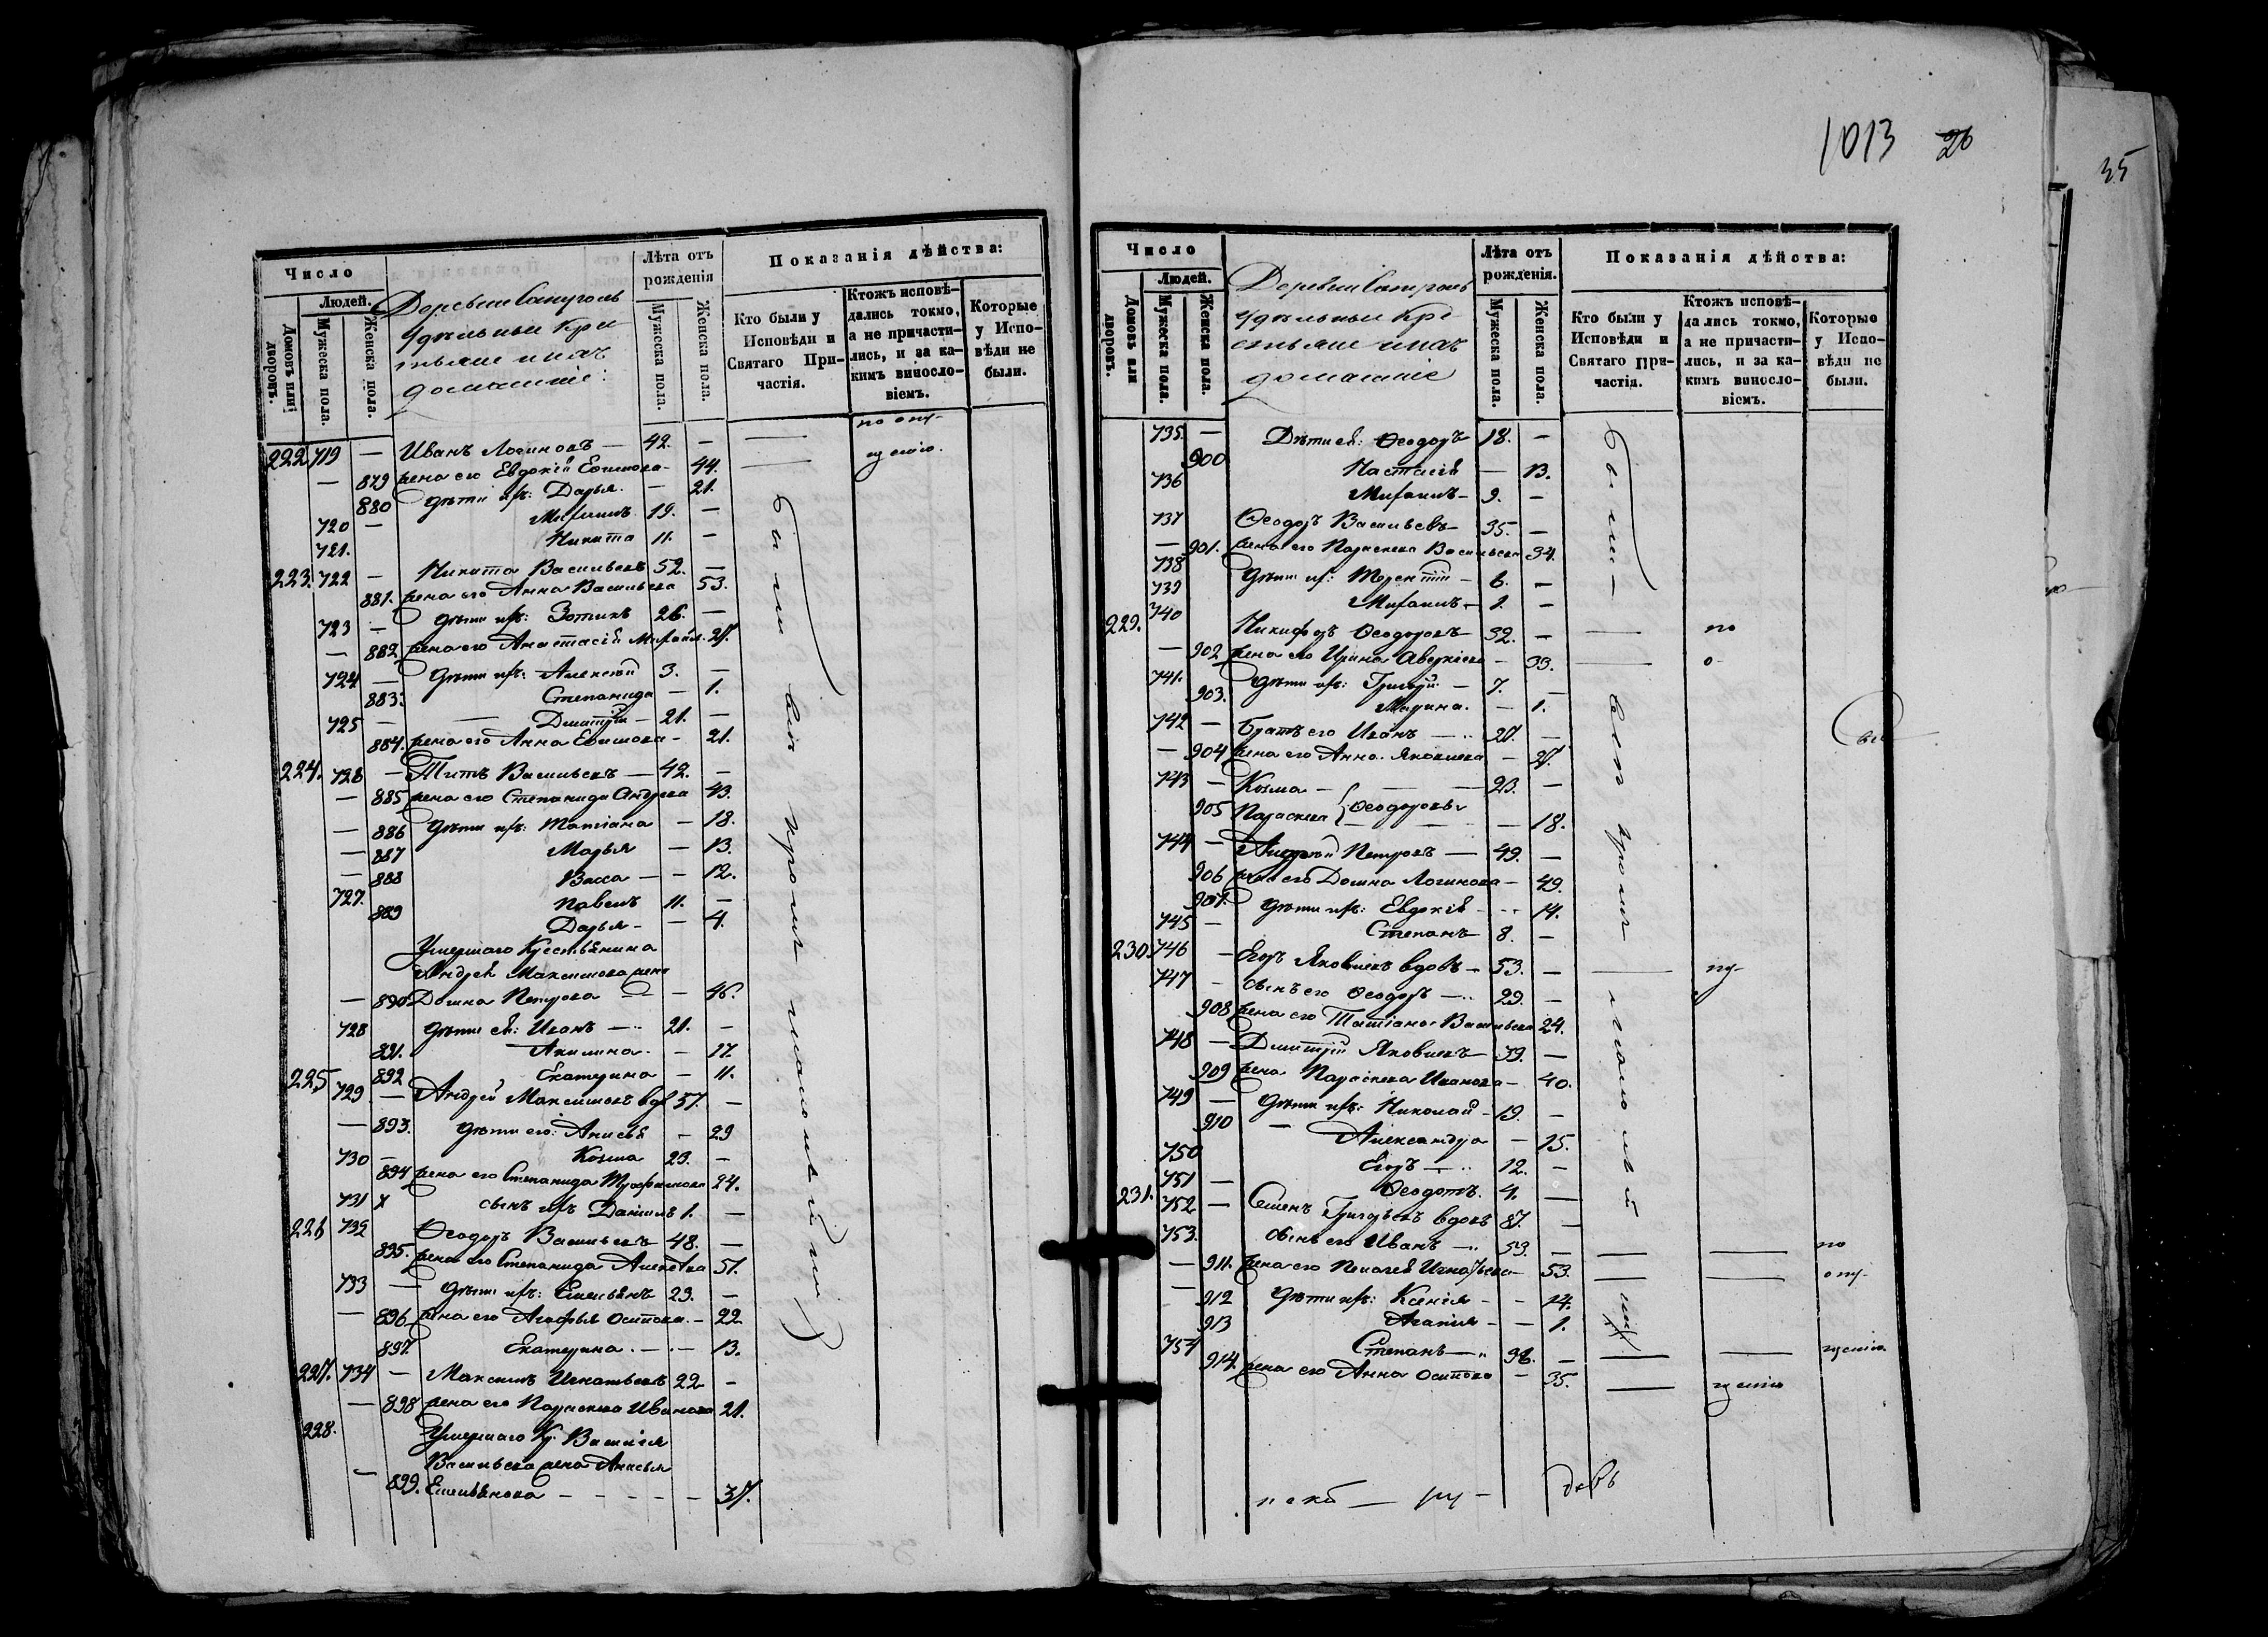 1013 26
35
Число
Людей.
Домовъ или дворовъ.
Мужеска пола.
Женска пола.
Деревни
Удѣльные кре
стьяне и ихъ
домашніе:
Лѣта отъ рожденія
Мужеска пола.
Женска пола.
Показанія дѣйства:
Кто были у Исповѣди и Святаго Причастія.
Ктожъ исповѣдались токмо, а не причастились, и за какимъ винословіемъ.
Которые у Исповѣди не были.
по опу-
222 719 — Иванъ Логиновъ — 42. —
щенію.
— 879 жена его Евдокія Ефимова — 44.
880 дѣти ихъ: Дарья. — 21.
720 — Михаилъ 19. —
721. Никита 11. —
223. 722 — Никита Васильевъ 52. —
881. жена его Анна Васильева 53.
723 — дѣти ихъ: Зотикъ 26. —
— 882 жена его Анастасія Михайл. 27.
724 — дѣти ихъ: Алексѣй 3. —
883. Степанида — 1.
725 — — Дмитрій — 21. —
884. жена его Анна Ефимова — 21.
224. 726 — Титъ Васильевъ — 42. —
— 885 жена его Степанида Андреева 43.
— 886 дѣти ихъ: Татіана — 18.
— 887 Марья — 13.
— 888 Васса — — 12.
727. Павелъ 11. —
889 Дарья — — 4.
Умершаго Крестьянина
Андрея Максимова жена
— 890 Домна Петрова — — 46.
728 дѣти ея: Иванъ — 21. —
891. Акилина. — 17.
892 Екатерина — 11.
225 729 — Андрей Максимовъ вдв 57. —
— 893. дѣти его: Анисья — 29
730 — Козма 23. —
894 жена его Степанида Трофимова 24.
731 х сынъ ихъ Даніилъ 1. —
226 732 Ѳеодоръ Васильевъ — 48. —
895. жена его Степанида Алексѣева 51.
733 — дѣти ихъ: Емельянъ 23. —
— 896 жена его Агафья Осипова. — 22
897 Екатерина. — 13.
227. 734 — Максимъ Игнатьевъ 22 —
— 898 жена его Параскева Иванова 21.
228. Умершаго Кр. Василія
Васильева жена Анисья
— 899. Емельянова — — — — 37.
были
вси
кромѣ
Число
Людей.
Домовъ или дворовъ.
Мужеска пола.
Женска пола.
Деревни
Удѣльные кре
стьяне и ихъ
домашніе
Лѣта отъ рожденія.
Мужеска пола.
Женска пола.
Показанія дѣйства:
Кто были у Исповѣди и Святаго Причастія.
Ктожъ исповѣдались токмо, а не причастились, и за какимъ винословіемъ.
Которые у Исповѣди не были.
735. — Дѣти ея: Ѳеодоръ 18. —
900 Настасія — 13.
736 Михаилъ — 9. —
737 Ѳеодоръ Васильевъ — 35. —
— 901. жена его Параскева Васильева 34.
738 дѣти их: Терентій — 6. —
739 Михаилъ — 1. —
229. 740 Никифоръ Ѳеодоровъ — 32. — — по
— 902 жена его Ирина Аверкіева — 33. — о-
741. дѣти ихъ: Григорій — 7. —
903. Марина. — 1.
742 — Братъ его Иванъ — 27. —
— 904 жена его Анна Яковлева — 27.
743 — Козма — — — 23. —
905 Параскева } Ѳеодоровы — 18.
744 — Андрей Петровъ — 49. —
906 жена его Домна Логинова — 49.
907. дѣти ихъ: Евдокія — 14.
745 — Степанъ 8. —
230. 746 — Егоръ Яковлевъ вдовъ — 53. — — пу-
747 — сынъ его Ѳеодоръ — 29. —
908 жена его Татіана Васильева 24.
748 — Дмитрій Яковлевъ — 39. —
909 жена Параскева Иванова — 40.
749 — дѣти ихъ: Николай — 19. —
910 — Александра — 15.
750 Егоръ — 12. —
751 — Ѳеодотъ. 4. —
231. 752 — Семенъ Григорьевъ вдовъ 87. —
753. Сынъ его Иванъ — 53. — — — по
— 911. жена его Пелагея Игнатьева — 53. — — опу-
— 912 дѣти ихъ: Ксенія — — 14.
913 Агапія — — 1.
754 Степанъ — 38. — — — щенію
914. жена его Анна Осипова — 35. — щенію
были
вси
кромѣ